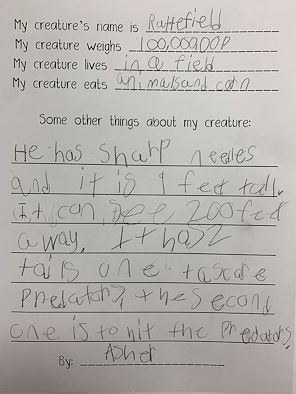 My creature's name is Ruttefield
My creature weighs 100,000,000P
My creature lives in a field
My creature eats animals and corn
Some other things about my creature:
He has sharp neeles
and it is 9 feet tall.
It can see 200 feet
away. It has 2
tails one to scare
predators, the second
one is to hit the predators.
By: Asher